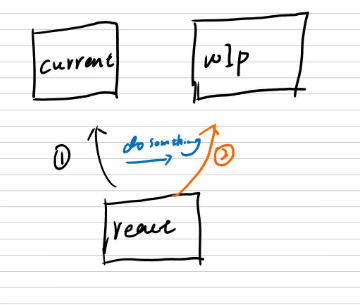 current
wip
① do somthing ②
react